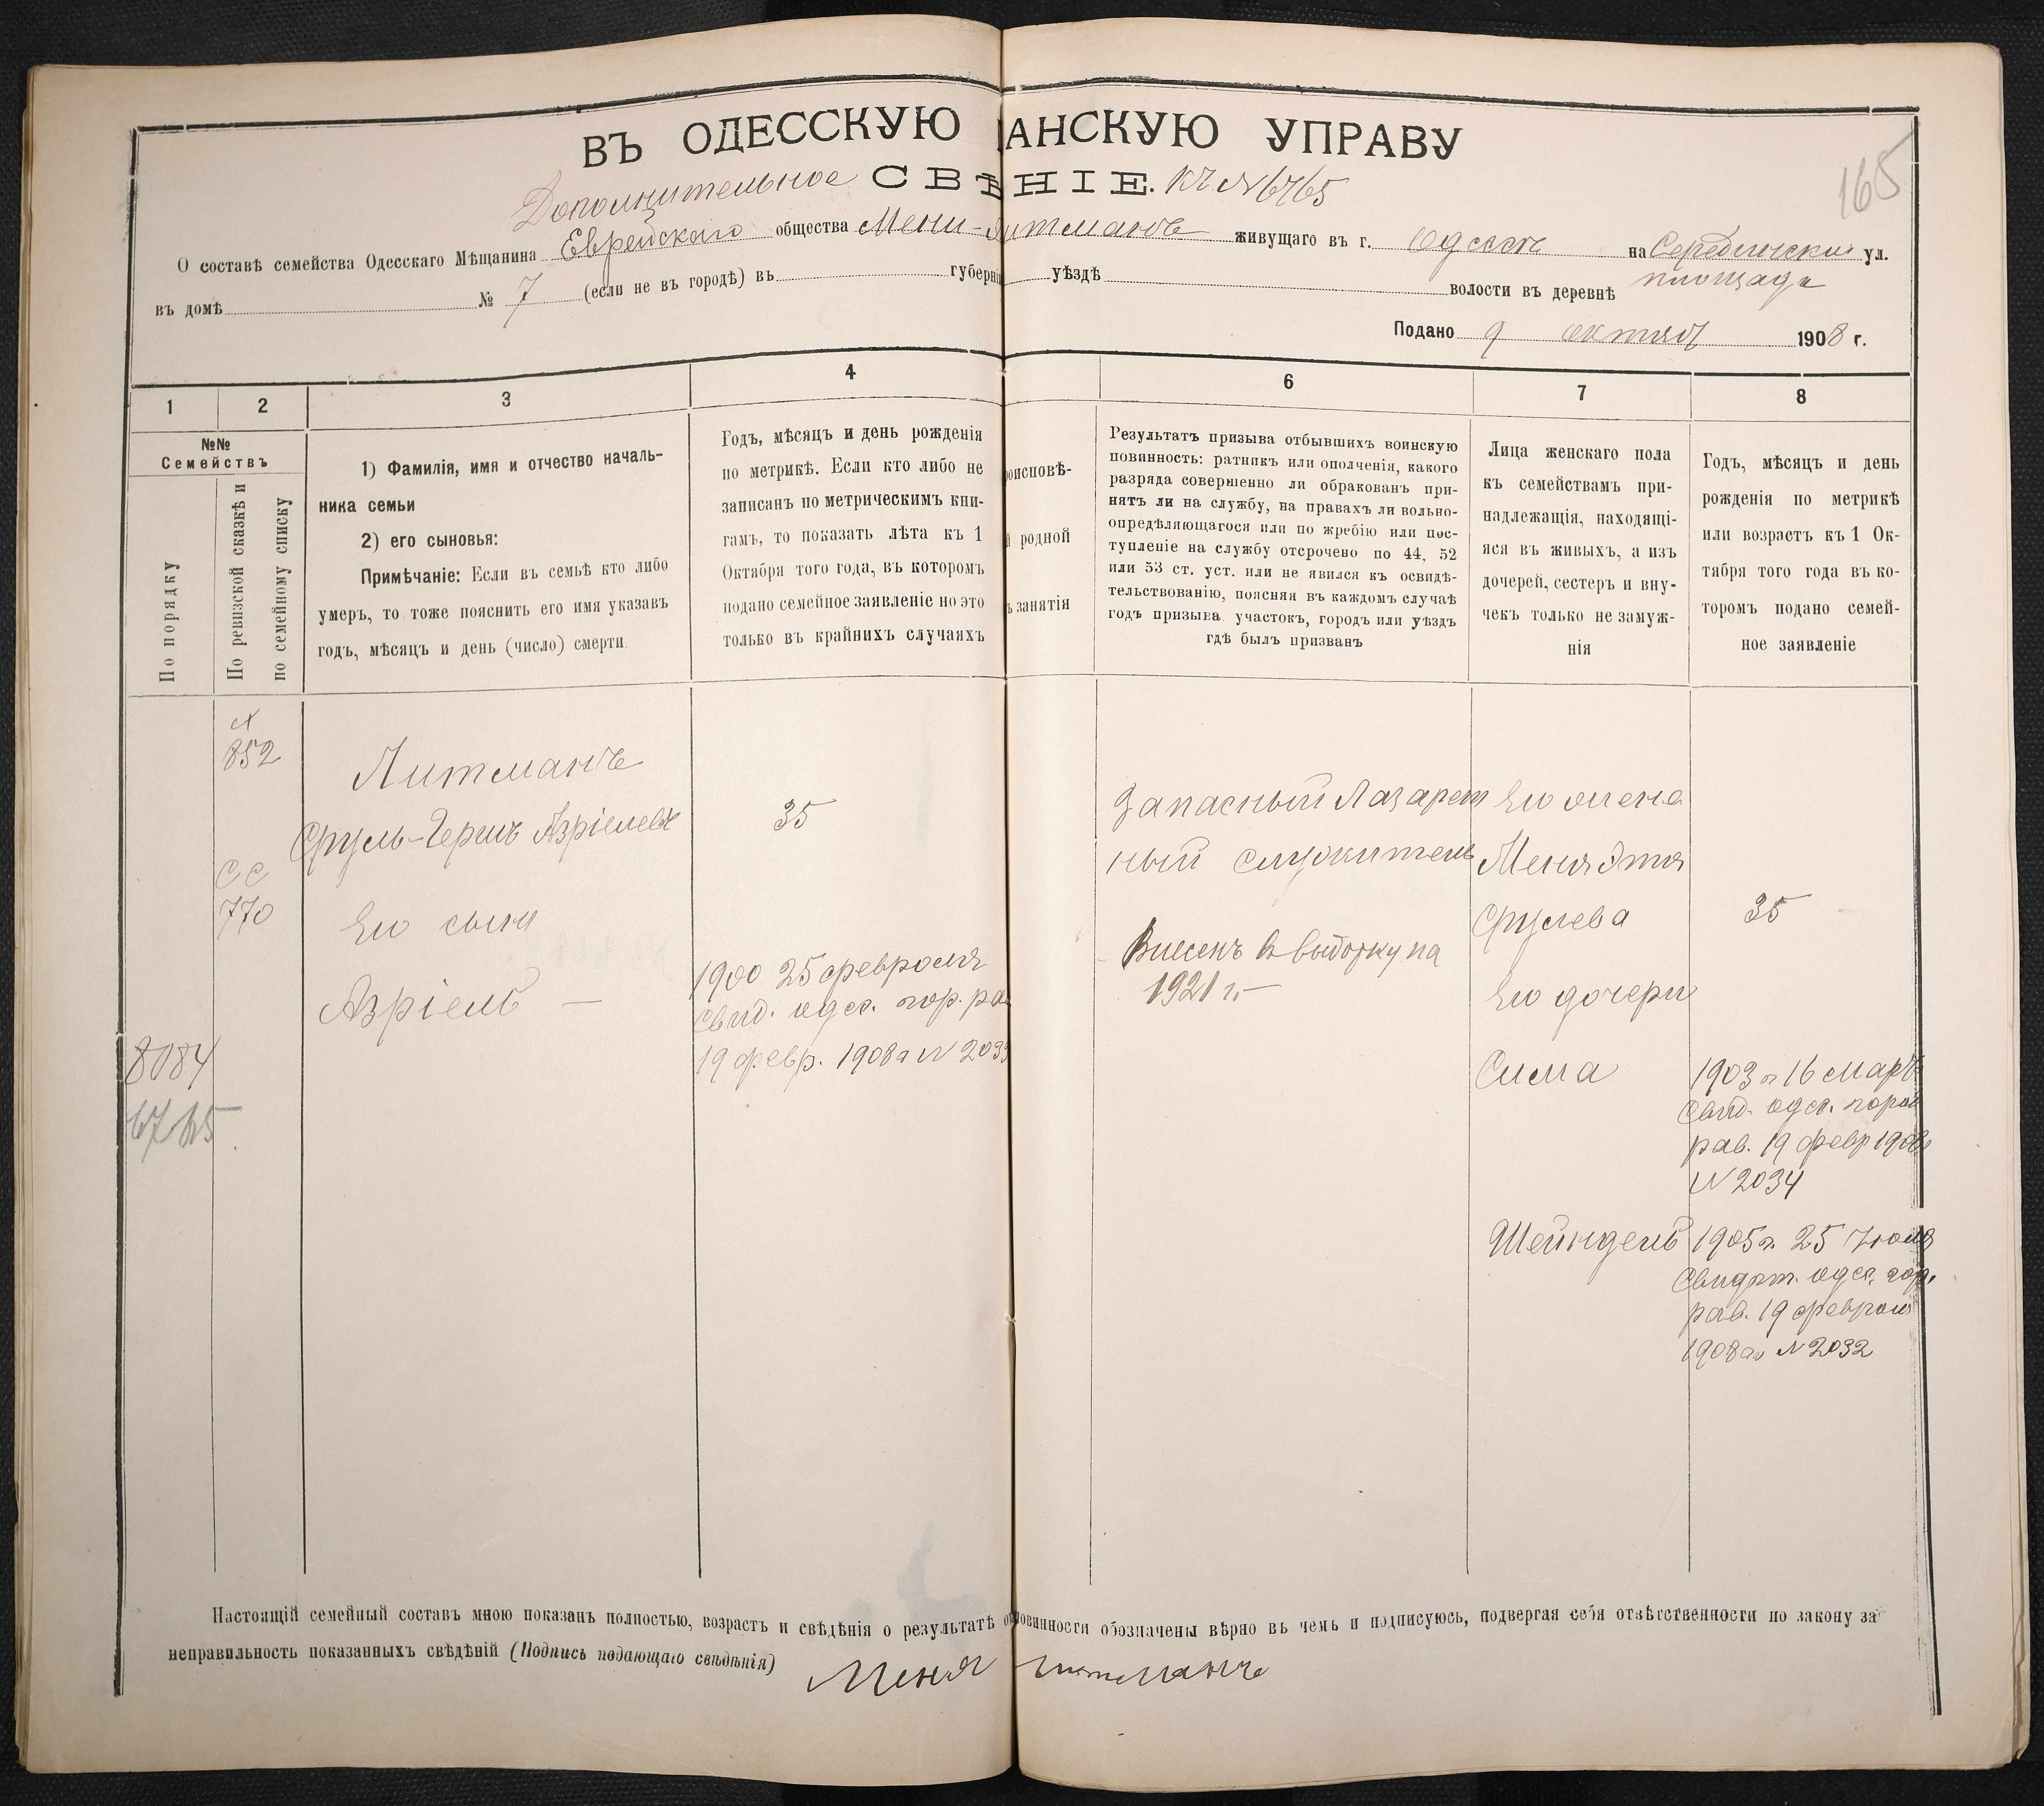 ВЪ ОДЕССКУЮ АНСКУЮ УПРАВУ
Дополнительное СВѢНІЕ. къ № 6765
165
О составѣ семейства Одесскаго Мѣщанина Еврейскаго общества Мени- Литманъ живущаго въ г. Одессѣ на Серединский ул.
площади
въ домѣ № 7 (если не въ городѣ) въ губерні уѣздѣ волости въ деревнѣ
Подано 9 октяб 1908 г.
1 2 3 4 6 7 8
№№
Семействъ
По порядку
По ревизской сказкѣ и
по семейному списку
1) Фамилія, имя и отчество началь-
ника семьи
2) его сыновья:
Примѣчаніе: Если въ семьѣ кто либо
умеръ, то тоже пояснить его имя указавъ
годъ, мѣсяцъ и день (число) смерти
Годъ, мѣсяцъ и день рожденія
по метрикѣ. Если кто либо не
записанъ по метрическимъ кни-
гамъ, то показать лѣта къ 1
Октября того года, въ которомъ
подано семейное заявленіе но это
только въ крайнихъ случаяхъ
роисповѣ-
й родной
ъ занятія
Результатъ призыва отбывшихъ воинскую
повинность: ратникъ или ополченія, какого
разряда совершенно ли обракованъ при-
нятъ ли на службу, на правахъ ли вольно-
опредѣляющагося или по жребію или пос-
тупленіе на службу отсрочено по 44, 52
или 53 ст. уст. или не явился къ освидѣ-
тельствованію, поясняя въ каждомъ случаѣ
годъ призыва участокъ, городъ или уѣздъ
гдѣ былъ призванъ
Лица женскаго пола
къ семействамъ при-
надлежащія, находящі-
яся въ живыхъ, а изъ
дочерей, сестеръ и вну-
чекъ только не замуж-
нія
Годъ, мѣсяцъ и день
рожденія по метрикѣ
или возрастъ къ 1 Ок-
тября того года въ ко-
торомъ подано семей-
ное заявленіе
852
СС
770
8084
6765
Литманъ
Сруль-Гершъ Азріелевъ
Его сынъ
Азріель —
35
1900 25 февраля
Свид. одес. гор. ра
19 февр. 1908 г N 2033
Запасный Лазарет
ный служитель
Внесенъ в выборку на
1921 г. —
Его жена
Меня Этя
Срулева
Его дочери
Сима
Шейндель
35
1903 г 16 мар
Свид. одес. горо
рав. 19 февр 1908
N 2034
1905 г. 25 Іюля
Свидѣт. одес. гор.
рав. 19 феврал
1908 г N 2032
Настоящій семейный составъ мною показанъ полностью, возрастъ и свѣдѣнія о результатѣ о повинности обозначены вѣрно въ чемъ и подписуюсь, подвергая себя отвѣтственности по закону за
неправильность показанныхъ свѣдѣній (Подпись подающаго свѣдѣнія) Меня Литманъ